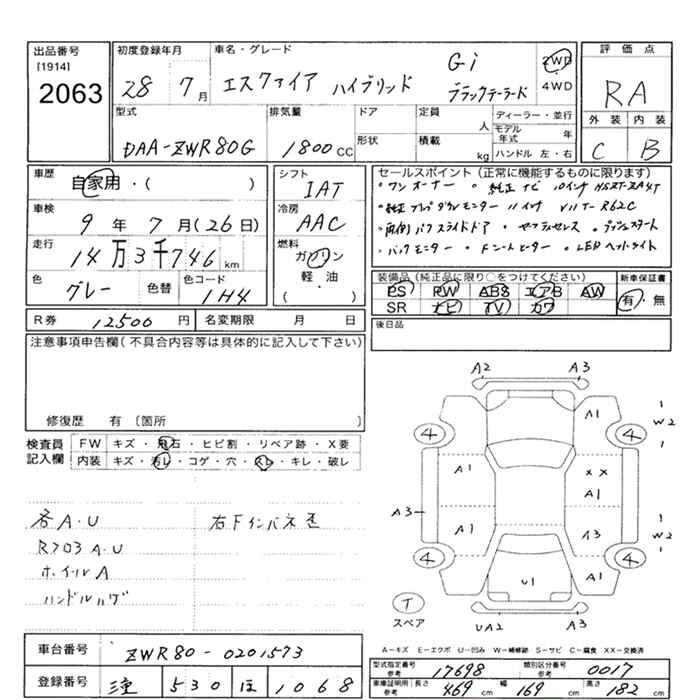 出品番号
[1914]
2063
初度登録年月
28 7月
車名・グレード
Gi
エスクァイア ハイブリッド ブラックテーラード
2WD
4WD
評価点
RA
外装 内装
C B
型式
DAA-ZWR80G
排気量
1800CC
ドア
形状
定員
人
積載
kg
ディーラー・並行
モデル年式 年
ハンドル 左・右
車歴
自家用・( )
車検
9年7月(26日)
走行
14万3千746km
色
グレー
色替
色コード
1H4
シフト
IAT
冷房
AAC
燃料
ガソリン
軽・油
( )
セールスポイント(正常に機能するものに限ります)
・ワンオーナー ・純正ナビ 10インチ
・両側パワスライドドア ・プッシュスタート
・バックモニター ・LEDヘッドライト
装備品(純正品に限り○をつけてください)
PS PW ABS エアB AW
SR ナビ TV カワ
新車保証書
有・無
R券 12500円
名変期限 月 日
後日品
注意事項申告欄(不具合内容等は具体的に記入して下さい)
修復歴 有〔箇所 〕
検査員記入欄
FW キズ・飛石・ヒビ割・リペア跡・X要
内装 キズ・汚レ・コゲ・穴・スレ・キレ・破レ
各A・U
右Fインパネ
R703 A・U
ホイールA
ハンドルハゲ
A2 A3
A1
1
W2
1
4 4
A1 XX
A1
A3
A1 A3
1
W2
1
4 4
U1 A1
T
スペア
UA2 A3
A－キズ E－エクボ U－凹み W－補修跡 S－サビ C－腐食 XX－交換済
車台番号
ZWR80-0201573
登録番号
530 ほ 1068
型式指定番号 参考 17698
類別区分番号 参考 0017
車庫証明用 参考 長さ 469 幅 169 高さ 182 cm